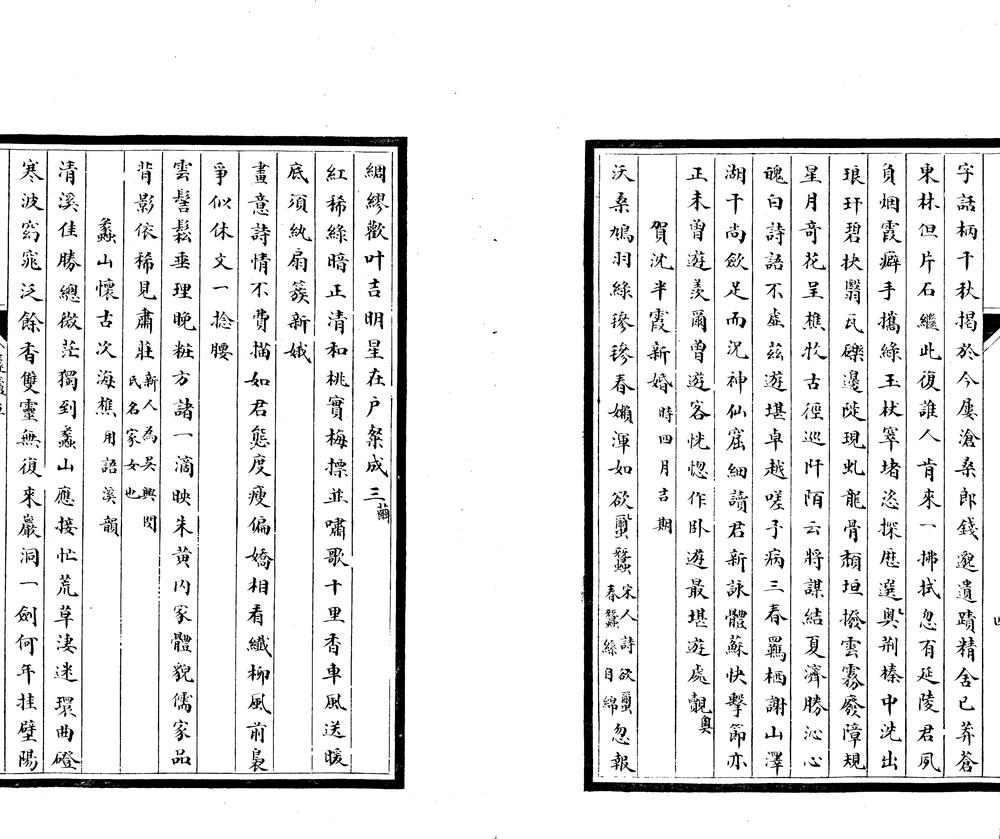 字話柄千秋揭於今屢滄桑郎錢邈遺蹟精舍已莽蒼
東林但片石繼此復誰人肯來一拂拭忽有延陵君夙
負烟霞癖手攜綠玉杖窣堵恣探歷選輿荊榛中洗出
琅玕碧抉翳瓦礫邊陡現虬龍骨頹垣撥雲霧廢障規
星月奇花呈樵牧古徑巡阡陌云將謀結夏濟勝沁心
醜白詩語不虛茲遊堪卓越嗟予病三春羈栖謝山澤
湖干尚歛足而況神仙窟細讀君新詠體蘇快擊節亦
正未曾遊羨爾曾遊客恍惚作卧遊最堪遊處覿輿
賀沈半霞新婚時四月吉期
沃桑鳩羽綠毿毿春嬾渾如欲蠒蠶宋人詩欲蠒春蠶絲目綿忽報
綢繆歡叶吉明星在户粲成三繭
紅稀綠暗正清和桃實梅摽並嘯歌十里香車風送暖
底須紈扇簇新娥
畫意詩情不費描如君態度瘦偏嬌相看纖柳風前裊
爭似休文一捻腰
雲髻鬆垂理晚粧方諸一滴映朱黄内家體貌儒家品
背影依稀見肅莊新人為吳興閔氏名家女也
蠡山懷古次海樵用語溪韻
清溪佳勝總微茫獨到蠡山應接忙荒草淒迷環曲磴
寒波窈窕泛餘香雙靈無復來巖洞一劍何年挂壁陽